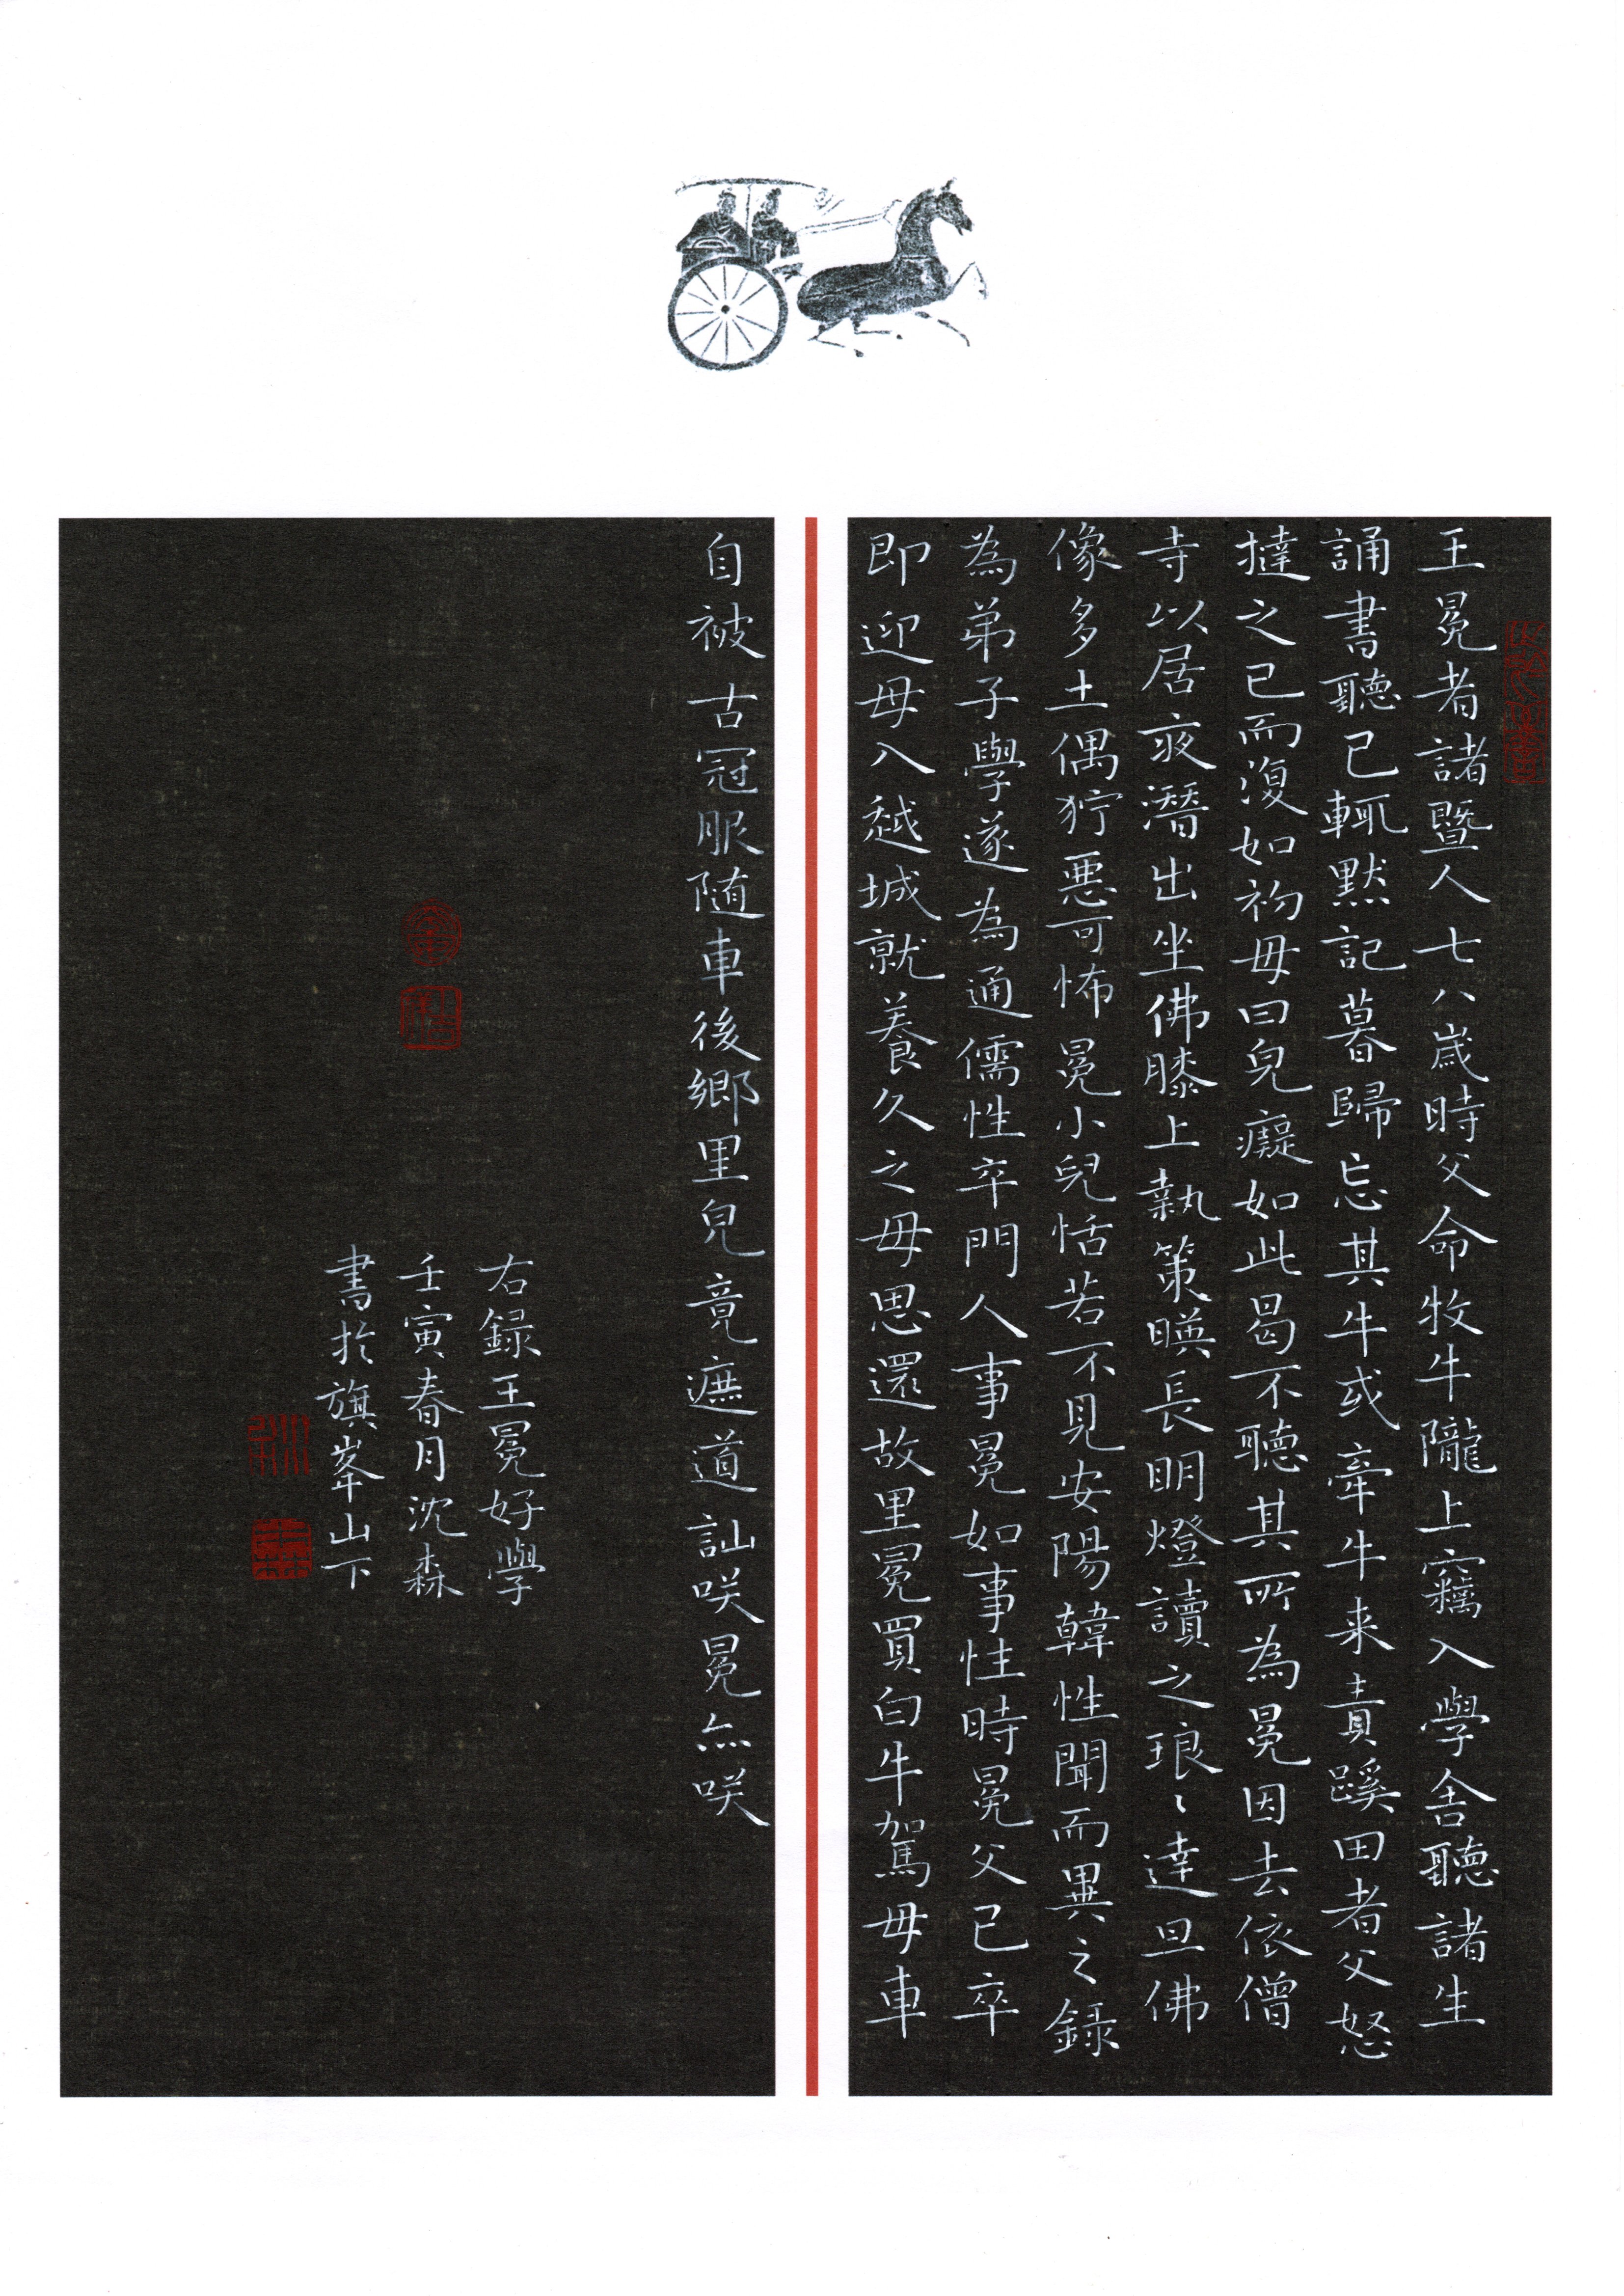 王冕者諸暨人七八歲時父命牧牛隴上竊入學舍聽諸生
誦書聽已輒默記暮歸忘其牛或牽牛来責蹊田者父怒
撻之已而復如初母曰皃癡如此曷不聽其所為冕因去依僧
寺以居夜潛出坐佛膝上執策暎長明燈讀之琅〻達旦佛
像多土偶狞惡可怖冕小兒恬若不見安陽韓性聞而異之録
為弟子學遂為通儒性卒門人事冕如事性時冕父已卒
即迎母入越城就養久之母思還故里冕買白牛駕母車
自被古冠服随車後鄉里皃竟遮道訕咲冕亦咲
右録王冕好學
壬寅春月沈森
書於旗峯山下